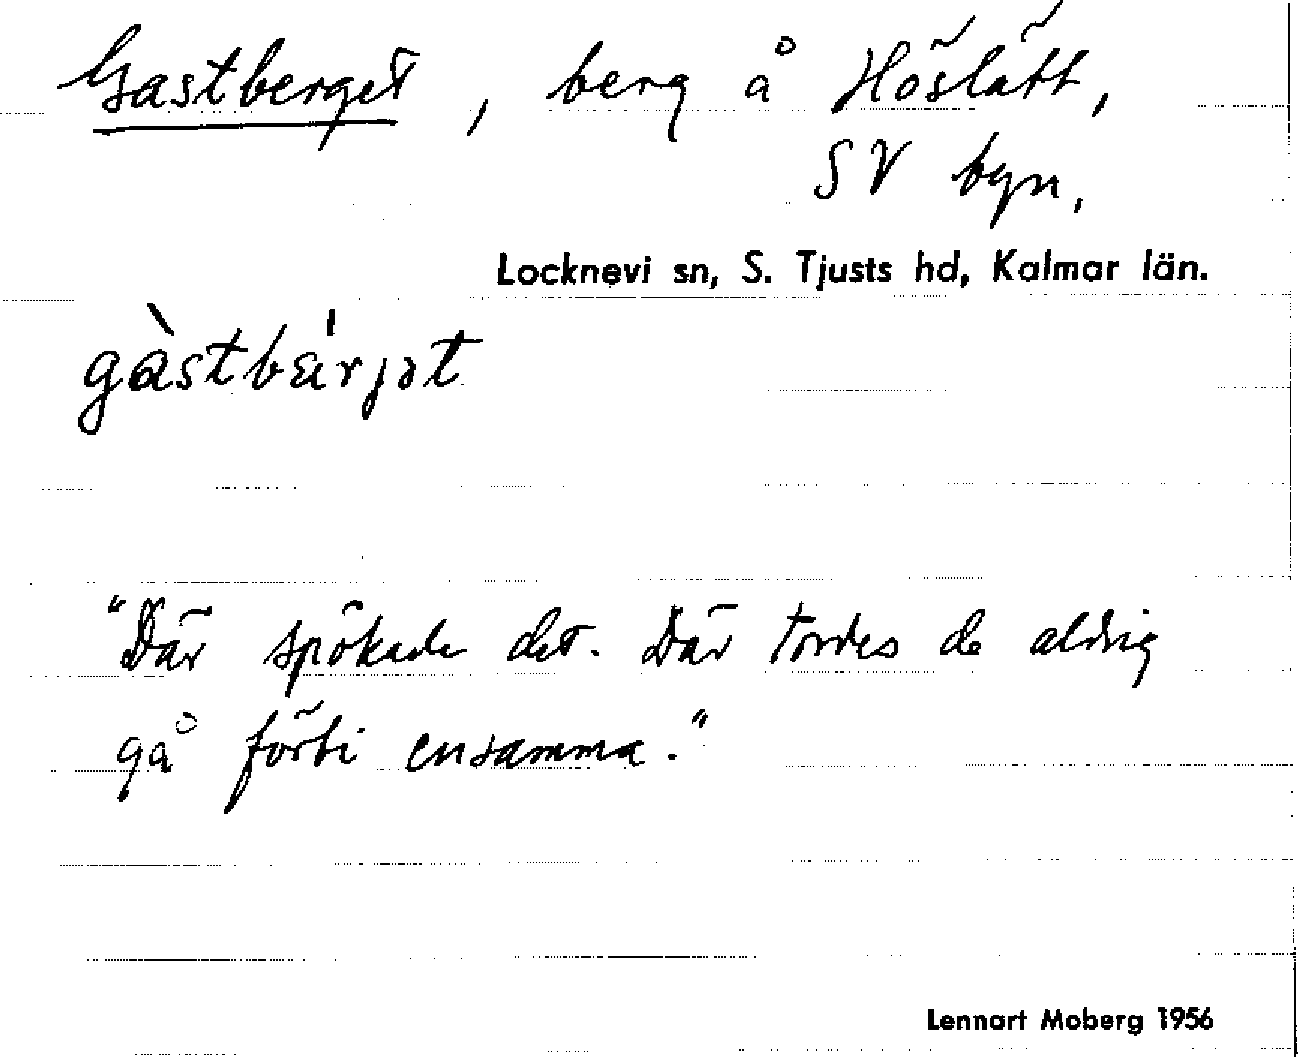 Gastberget, berg å Höslätt,
SV byn,
Locknevi sn, S. Tjusts hd, Kalmar län.
gàstbæ̀rjət
"Där spökade det. Där tordes de aldrig
gå förbi ensamma."
Lennart Moberg 1956